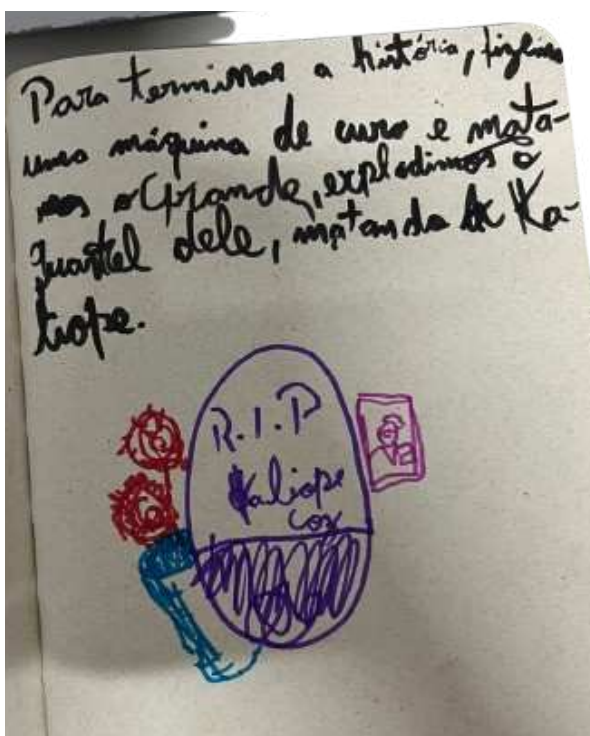 Para terminar a história, fizemos
uma máquina de curo e mata-
mos o Grande, explodimos o
quartel dele, matando a Ka-
liope.
R.I.P
Kaliope
cox